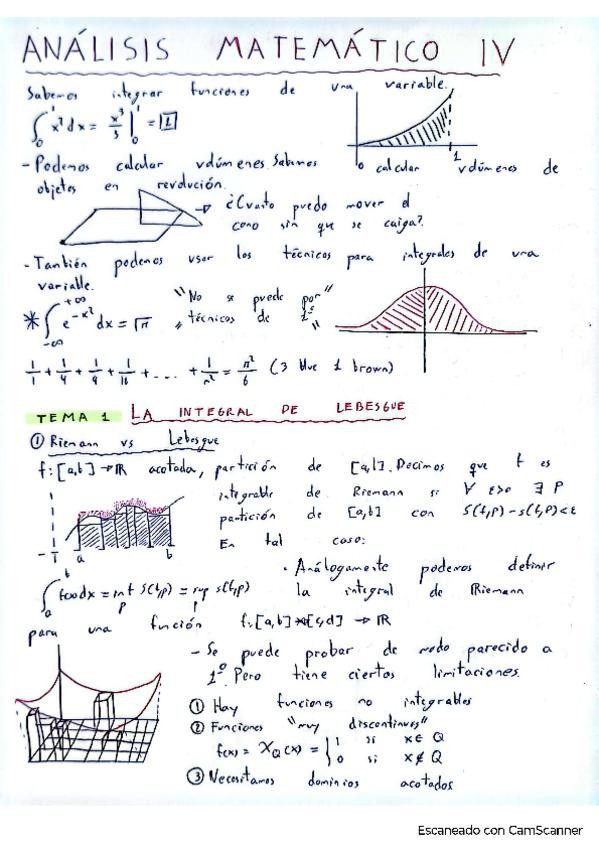 ANÁLISIS MATEMÁTICO IV
Sabemos integrar funciones de una variable.
∫₀¹ x² dx = x³/3 |₀¹ = 1
0 1
- Podemos calcular volúmenes. Sabemos calcular volúmenes de
objetos en revolución.
→ ¿Cuánto puedo mover el
cono sin que se caiga?
- También podemos usar las técnicas para integrales de una
variable.
* ∫₋∞⁺∞ e^(-x²) dx = √π
"No se puede por
técnicas de 1º"
1/1 + 1/4 + 1/9 + 1/16 + ... + 1/n² = π²/6 (3 blue 1 brown)
TEMA 1 LA INTEGRAL DE LEBESGUE
① Riemann vs Lebesgue
f: [a,b] → ℝ acotada, partición de [a,b]. Decimos que f es
integrable de Riemann si ∀ ε>0 ∃ P
partición de [a,b] con S(f,P) - s(f,P) < ε
En tal caso:
a b
∫ₐᵇ f(x) dx = inf S(f,P) = sup s(f,P)
P P
· Análogamente podemos definir
la integral de Riemann
para una función f: [a,b]×[c,d] → ℝ
- Se puede probar de modo parecido a
1º. Pero tiene ciertas limitaciones.
① Hay funciones no integrables
② Funciones "muy discontinuas"
f(x) = χ_Q(x) = { 1 si x ∈ Q
0 si x ∉ Q
③ Necesitamos dominios acotados
Escaneado con CamScanner